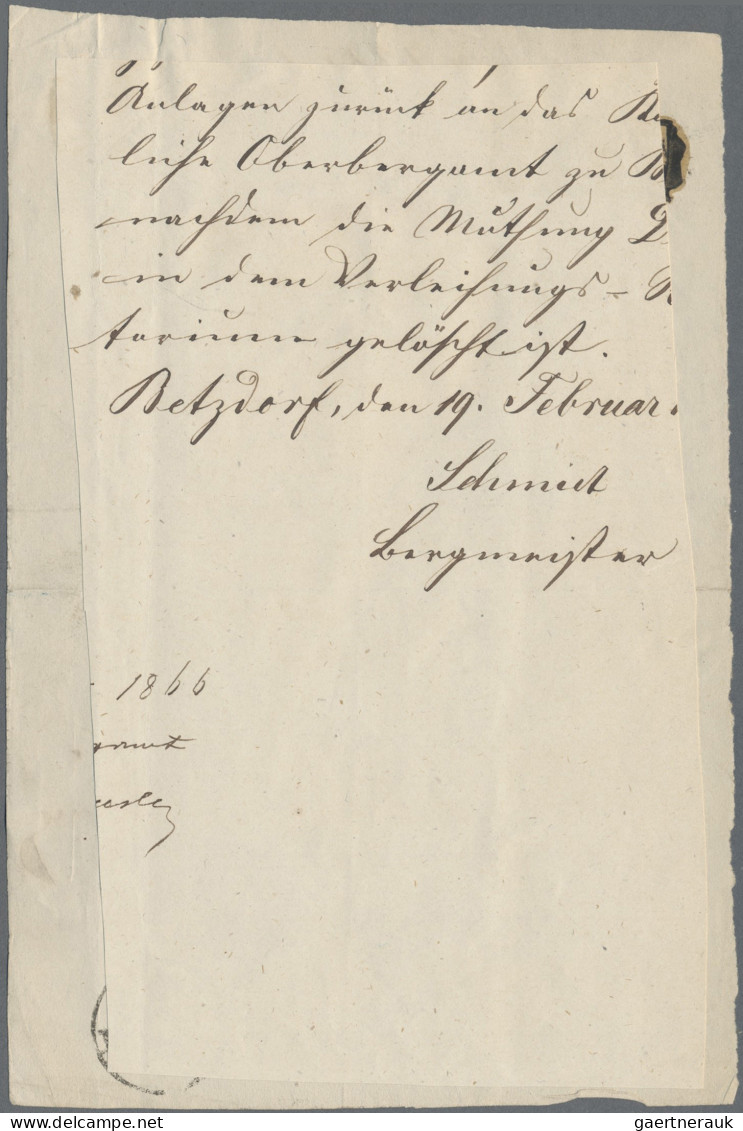 Anlagen zurück an das K
liche Oberbergamt zu B
nachdem die Muthung
in dem Verleihungs- R
torium gelöscht ist.
Betzdorf, den 19. Februar
Schmidt
Bergmeister
1866
gamt
DELCAMPE.NET
gaertnerauk